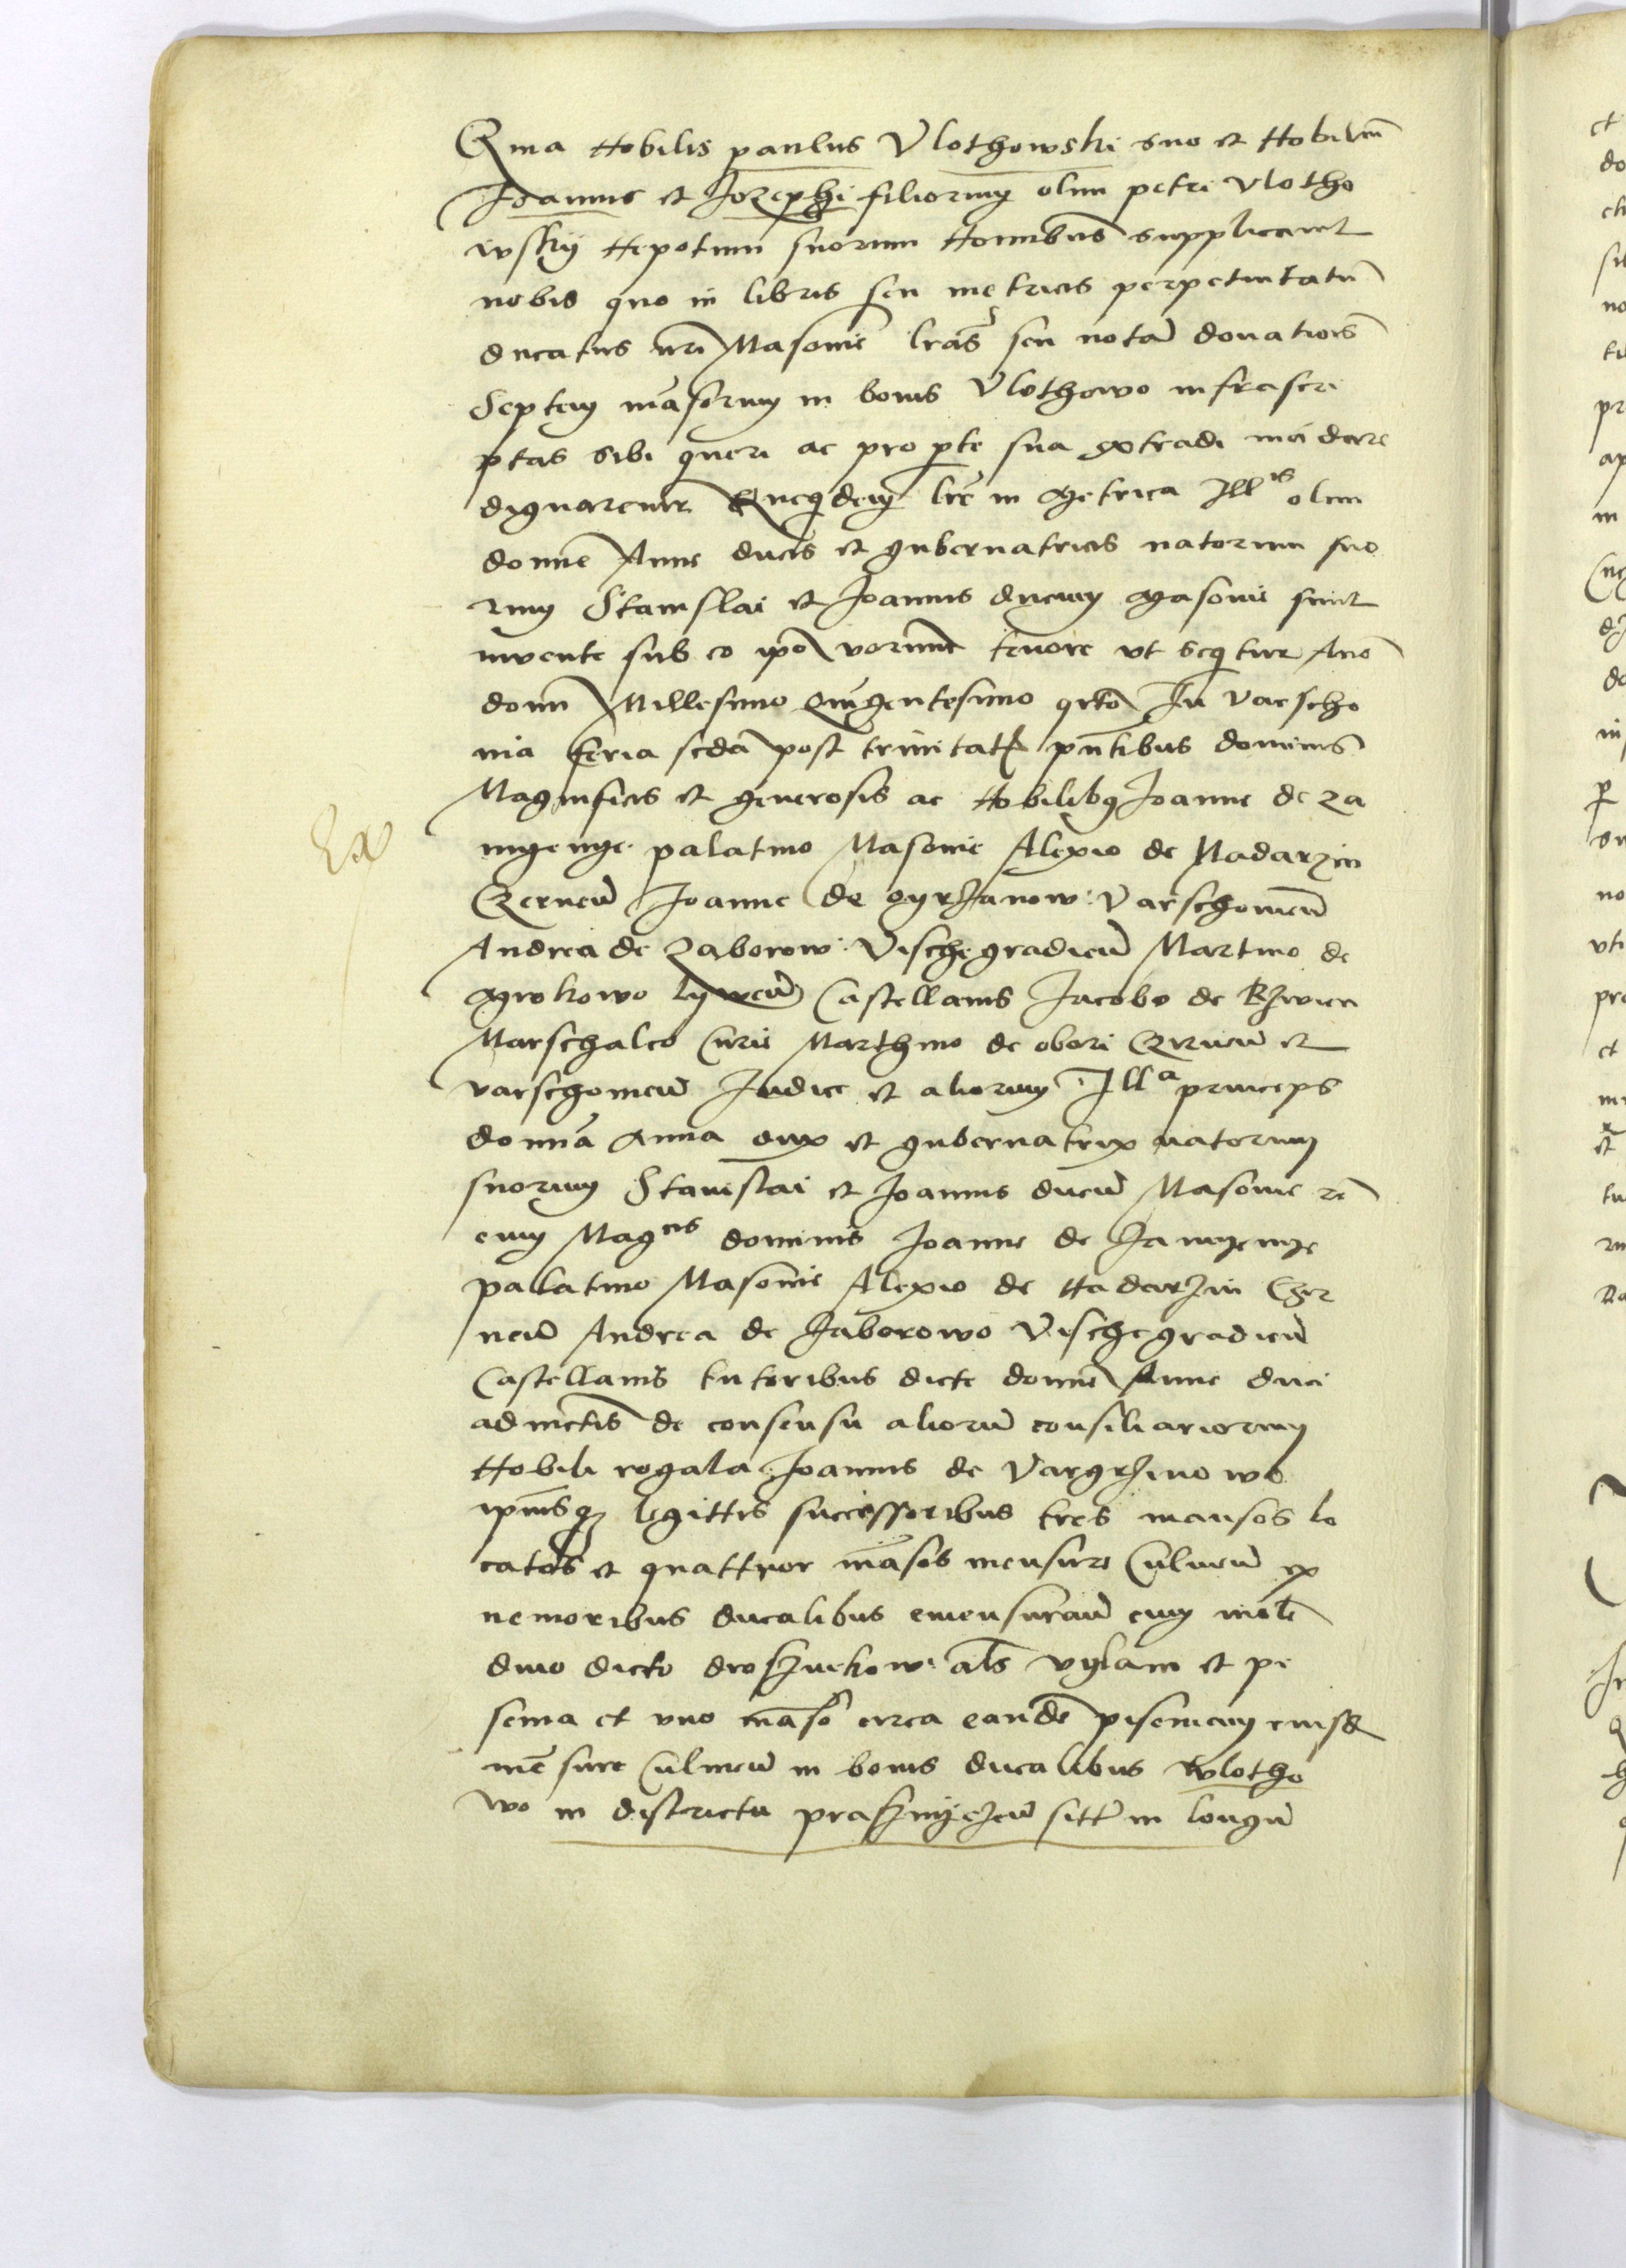 Quia Nobilis paulus Vlothowski suo et Nobiliū
Joannis et Jozephi filiorum olim petri vlotho
wskij Nepotum suorum Nominibus supplicauit
nobis quo in libris seu metricis perpetuitatū
ducatus nrī Masouie lrās seu notam donatiois
Septem māsorum in bonis Vlothowo infrascri
ptas sibi queri ac pro pte sua extradi mādare
dignaremur Quequidem lre in Metrica Illris olim
domne Anne ducis et gubernatricis natorum suo
rum Stanislai et Joannis ducum Masouie sunt
inuente sub eo ipo verorum tenore vt sequitur Ano
domi Millesimo quingentesimo qrto In varscho
uia feria scda post trinitatis pntibus dominis
Magnificis et generosis ac Nobilibus Joanne de za
myenye palatino Masouie Alexio de Nadarzin
Czerneū Joanne de dzyrzanow Varschouieū
Andrea de Zaborow Vischegradieū Martino de
Mrokowo lyweū Castellanis Jacobo de Kzwien
Marschalco Curie Marthino de obori Czrneū et
varschouieū Judice et aliorum Illa princeps
domna Anna dux et gubernatrix natorum
suorum Stanislai et Joannis ducū Masouie rē
cum Magcis dominis Joanne de Zamyenye
palatino Masouie Alexio de Nadarzin Czer
neū Andrea de Zaborowo Vischegradieū
Castellanis tutoribus dicte domne Anne duci
adiunctis de consensu aliorū consiliariorum
Nobili rogala Joannis de Vargrzinowo
ipiusq legittis successoribus tres mansos lo
catos et quattuor māsos mensure Culmeū ex
nemoribus ducalibus emensurauū cum mole
dino dicto drosznekow als vylam et pe
sema et vno māso circa eandē pisemam eiusd
mēsure Culmeū in bonis ducalibus Wlotho
wo in districtu prasznijczeū sitt in longū
Ex